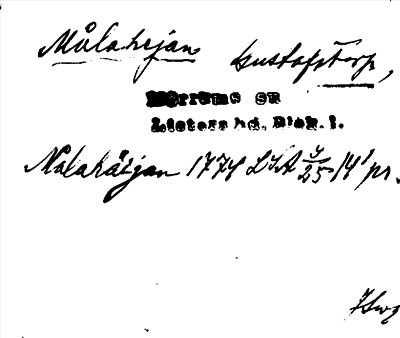 Målahejan Gustafstorp,
Mörrums sn
Listers hd. Blek. l.
Målahäjan 1774 LSA 25 14' pr.